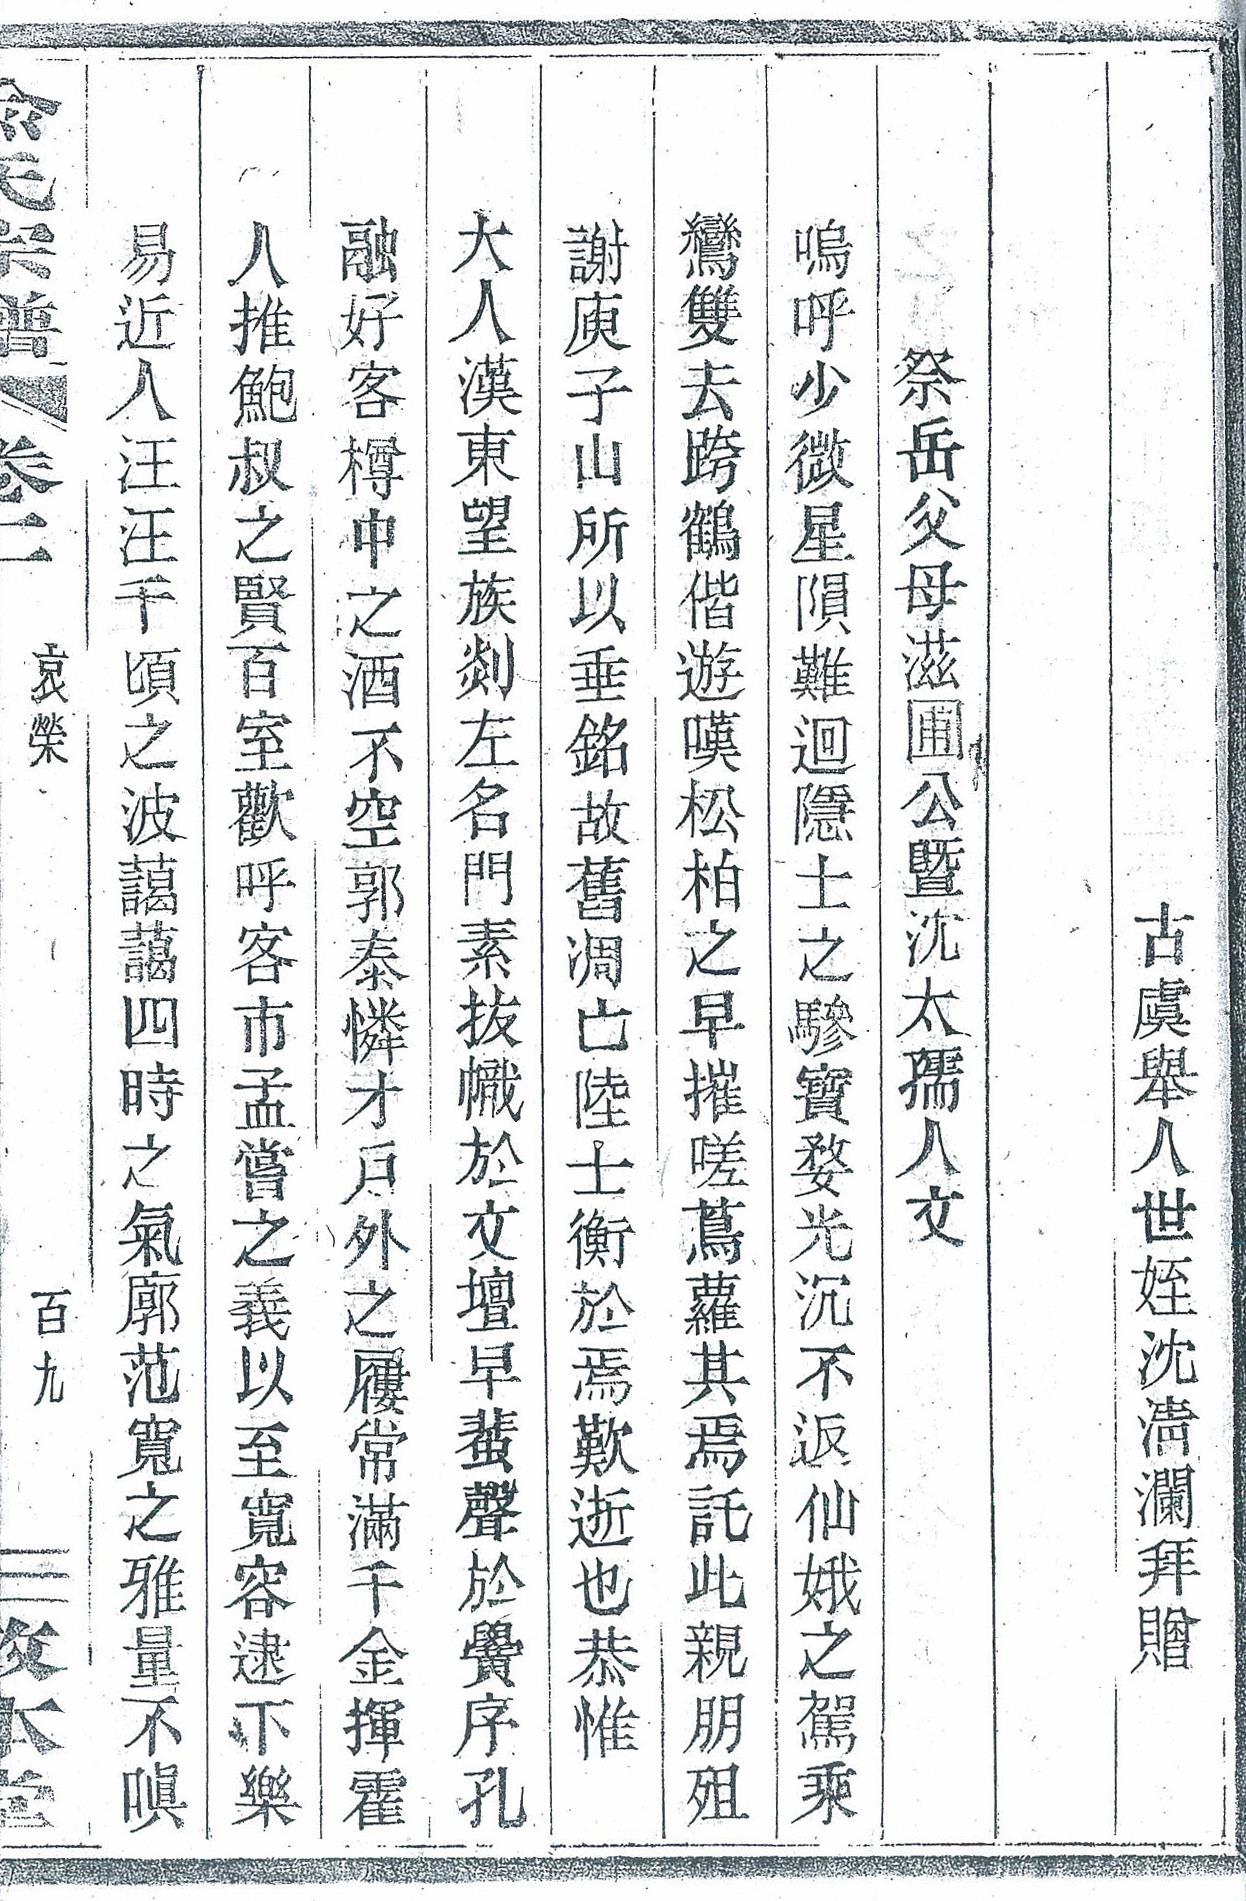 古虞舉人世姪沈淸瀾拜贈
祭岳父母滋圃公暨沈太孺人文
嗚呼少微星隕難迴隱士之驂寶婺光沉不返仙娥之駕乘
鸞雙去跨鶴偕遊嘆松柏之早摧嗟蔦蘿其焉託此親朋殂
謝庾子山所以垂銘故舊凋亡陸士衡於焉歎逝也恭惟
大人漢東望族剡左名門素拔幟於文壇早蜚聲於黌序孔
融好客樽中之酒不空郭泰憐才戶外之屨常滿千金揮霍
人推鮑叔之賢百室歡呼客市孟嘗之義以至寬容逮下樂
易近人汪汪千頃之波藹藹四時之氣廓范寬之雅量不嗔
氏宗譜 卷二 哀榮 百九 敦本堂